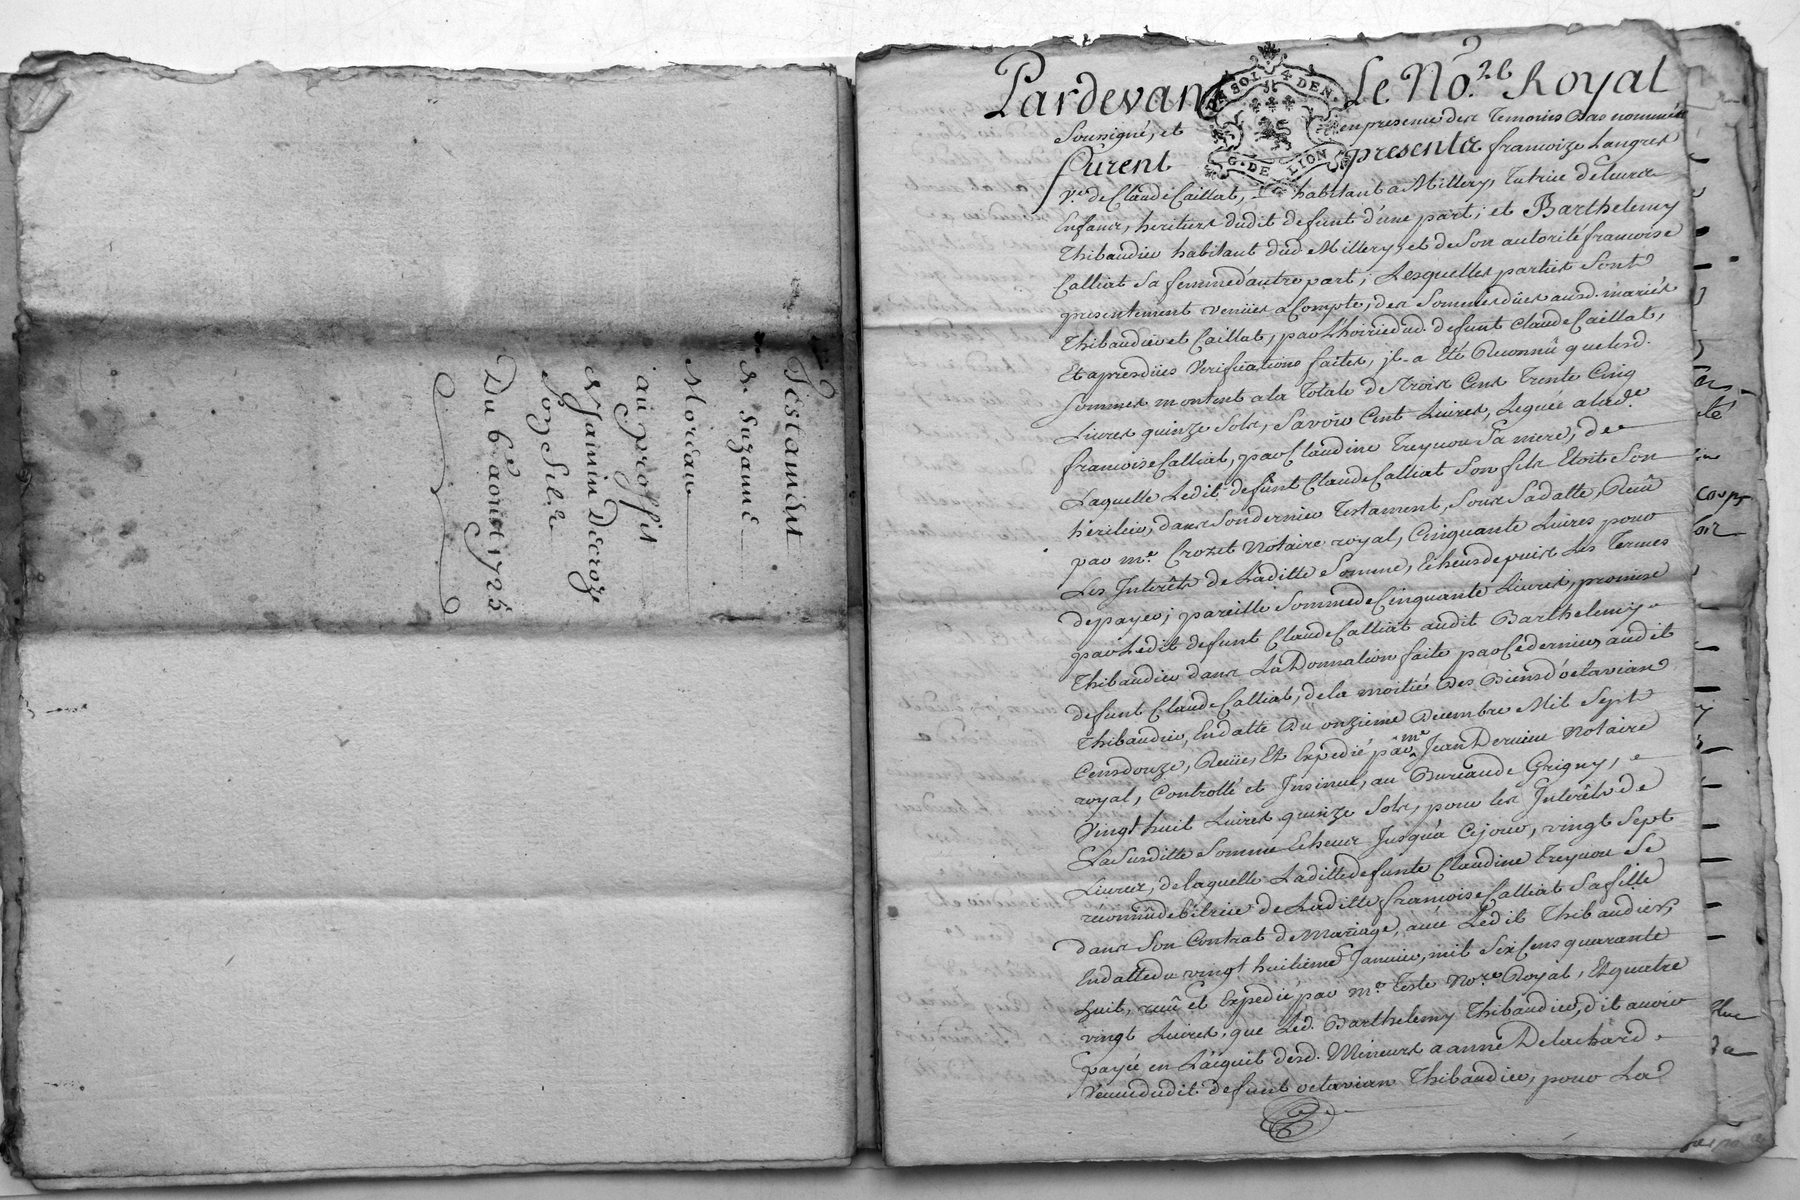 Testament
de Suzanne
Moreau
au proffit
d'Jainin Decroze
son fils
Du 6e aoust 1725
Pardevant Le No.re Royal
SOL 4 DEN.
G. DE LION
Sousigné, et en presence des Temoins Bas nommés
furent presents francoize Langres
Ve. de Claude Caillat, habitant a Millery, Tutrice de leurs
Enfans, heritiers dudit defunt d'une part; et Barthelemy
Thibaudier habitant dud Millery, et de Son autorité francoise
Calliat sa femme d'autre part; Lesquelles parties Sont
presentement venües a Compte, des Sommes dües ausd. mariés
Thibaudier et Caillat, par L'hoirie dud. defunt Claude Caillat,
Et apres dües Verifications faites, jl a Eté Reconnû que lesd.
sommes montent a la Totale de Trois Cens Trente Cinq
Livres quinze Sols, Savoir Cent Livres, Leguée a lad.e
francoise Calliat, par Claudine Treynou Sa mere, de
Laquelle Ledit defunt Claude Calliat Son fils Etoit Son
heritier, dans Son dernier Testament, Sous Sa datte, Reçû
par me. Crozet Notaire royal, Cinquante Livres pour
Les Interêts de Laditte Somme, Echeus depuis Les Termes
de payer; pareille Somme de Cinquante Livres, promise
par Ledit defunt Claude Calliat audit Barthelemy
Thibaudier dans La Donnation faite par Ce dernier, audit
defunt Claude Calliat, de la moitié Des Biens d'octavian
Thibaudier, En datte Du onzieme Decembre Mil Sept
Cens douze, Reçüe, Et Expedié par me Jean Dervieu Notaire
royal, Controllé et Insinué, au Bureau de Grigny,
Vingt huit Livres quinze Sols, pour les Interêts de
La Susditte Somme Echeus Jusqu'a Ce jour, vingt Sept
Livres, de laquelle Laditte defunte Claudine Treynou Se
reconnû debitrice de Laditte francoise Calliat Sa fille
dans Son Contrat de Mariage, avec Ledit Thibaudier,
En datte du vingt huitieme Janvier, mil Six Cens quarante
huit, reçû et Expedié par me. Teste No.re Royal, Et quatre
vingt Livres, que Led. Barthelemy Thibaudier, dit avoir
payée en L'aiquit desd. Mineurs a anne Delachard
Veuve dudit defunt octavian Thibaudier, pour La